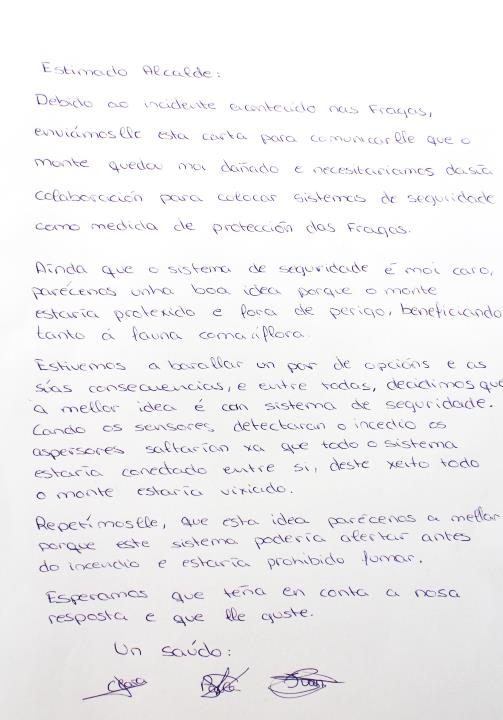 Estimado Alcalde:
Debido ao incidente acontecido nas Fragas,
enviámoslle esta carta para comunicarlle que o
monte quedou moi dañado e necesitariamos da súa
colaboración para colocar sistemas de seguridade
como medida de protección das Fragas.
Aínda que o sistema de seguridade é moi caro,
parécenos unha boa idea porque o monte
estaría protexido e fora de perigo, beneficiando
tanto á fauna coma á flora.
Estivemos a barallar un par de opcións e as
súas consecuencias, e entre todas, decidimos que
a mellor idea é con sistema de seguridade.
Cando os sensores detectaran o incedio os
aspersores saltarían xa que todo o sistema
estaría conectado entre si, deste xeito todo
o monte estaría vixiado.
Repetímoslle, que esta idea parécenos a mellor
porque este sistema podería alertar antes
do incendio e estaría prohibido fumar.
Esperamos que teña en conta a nosa
resposta e que lle guste.
Un saúdo: